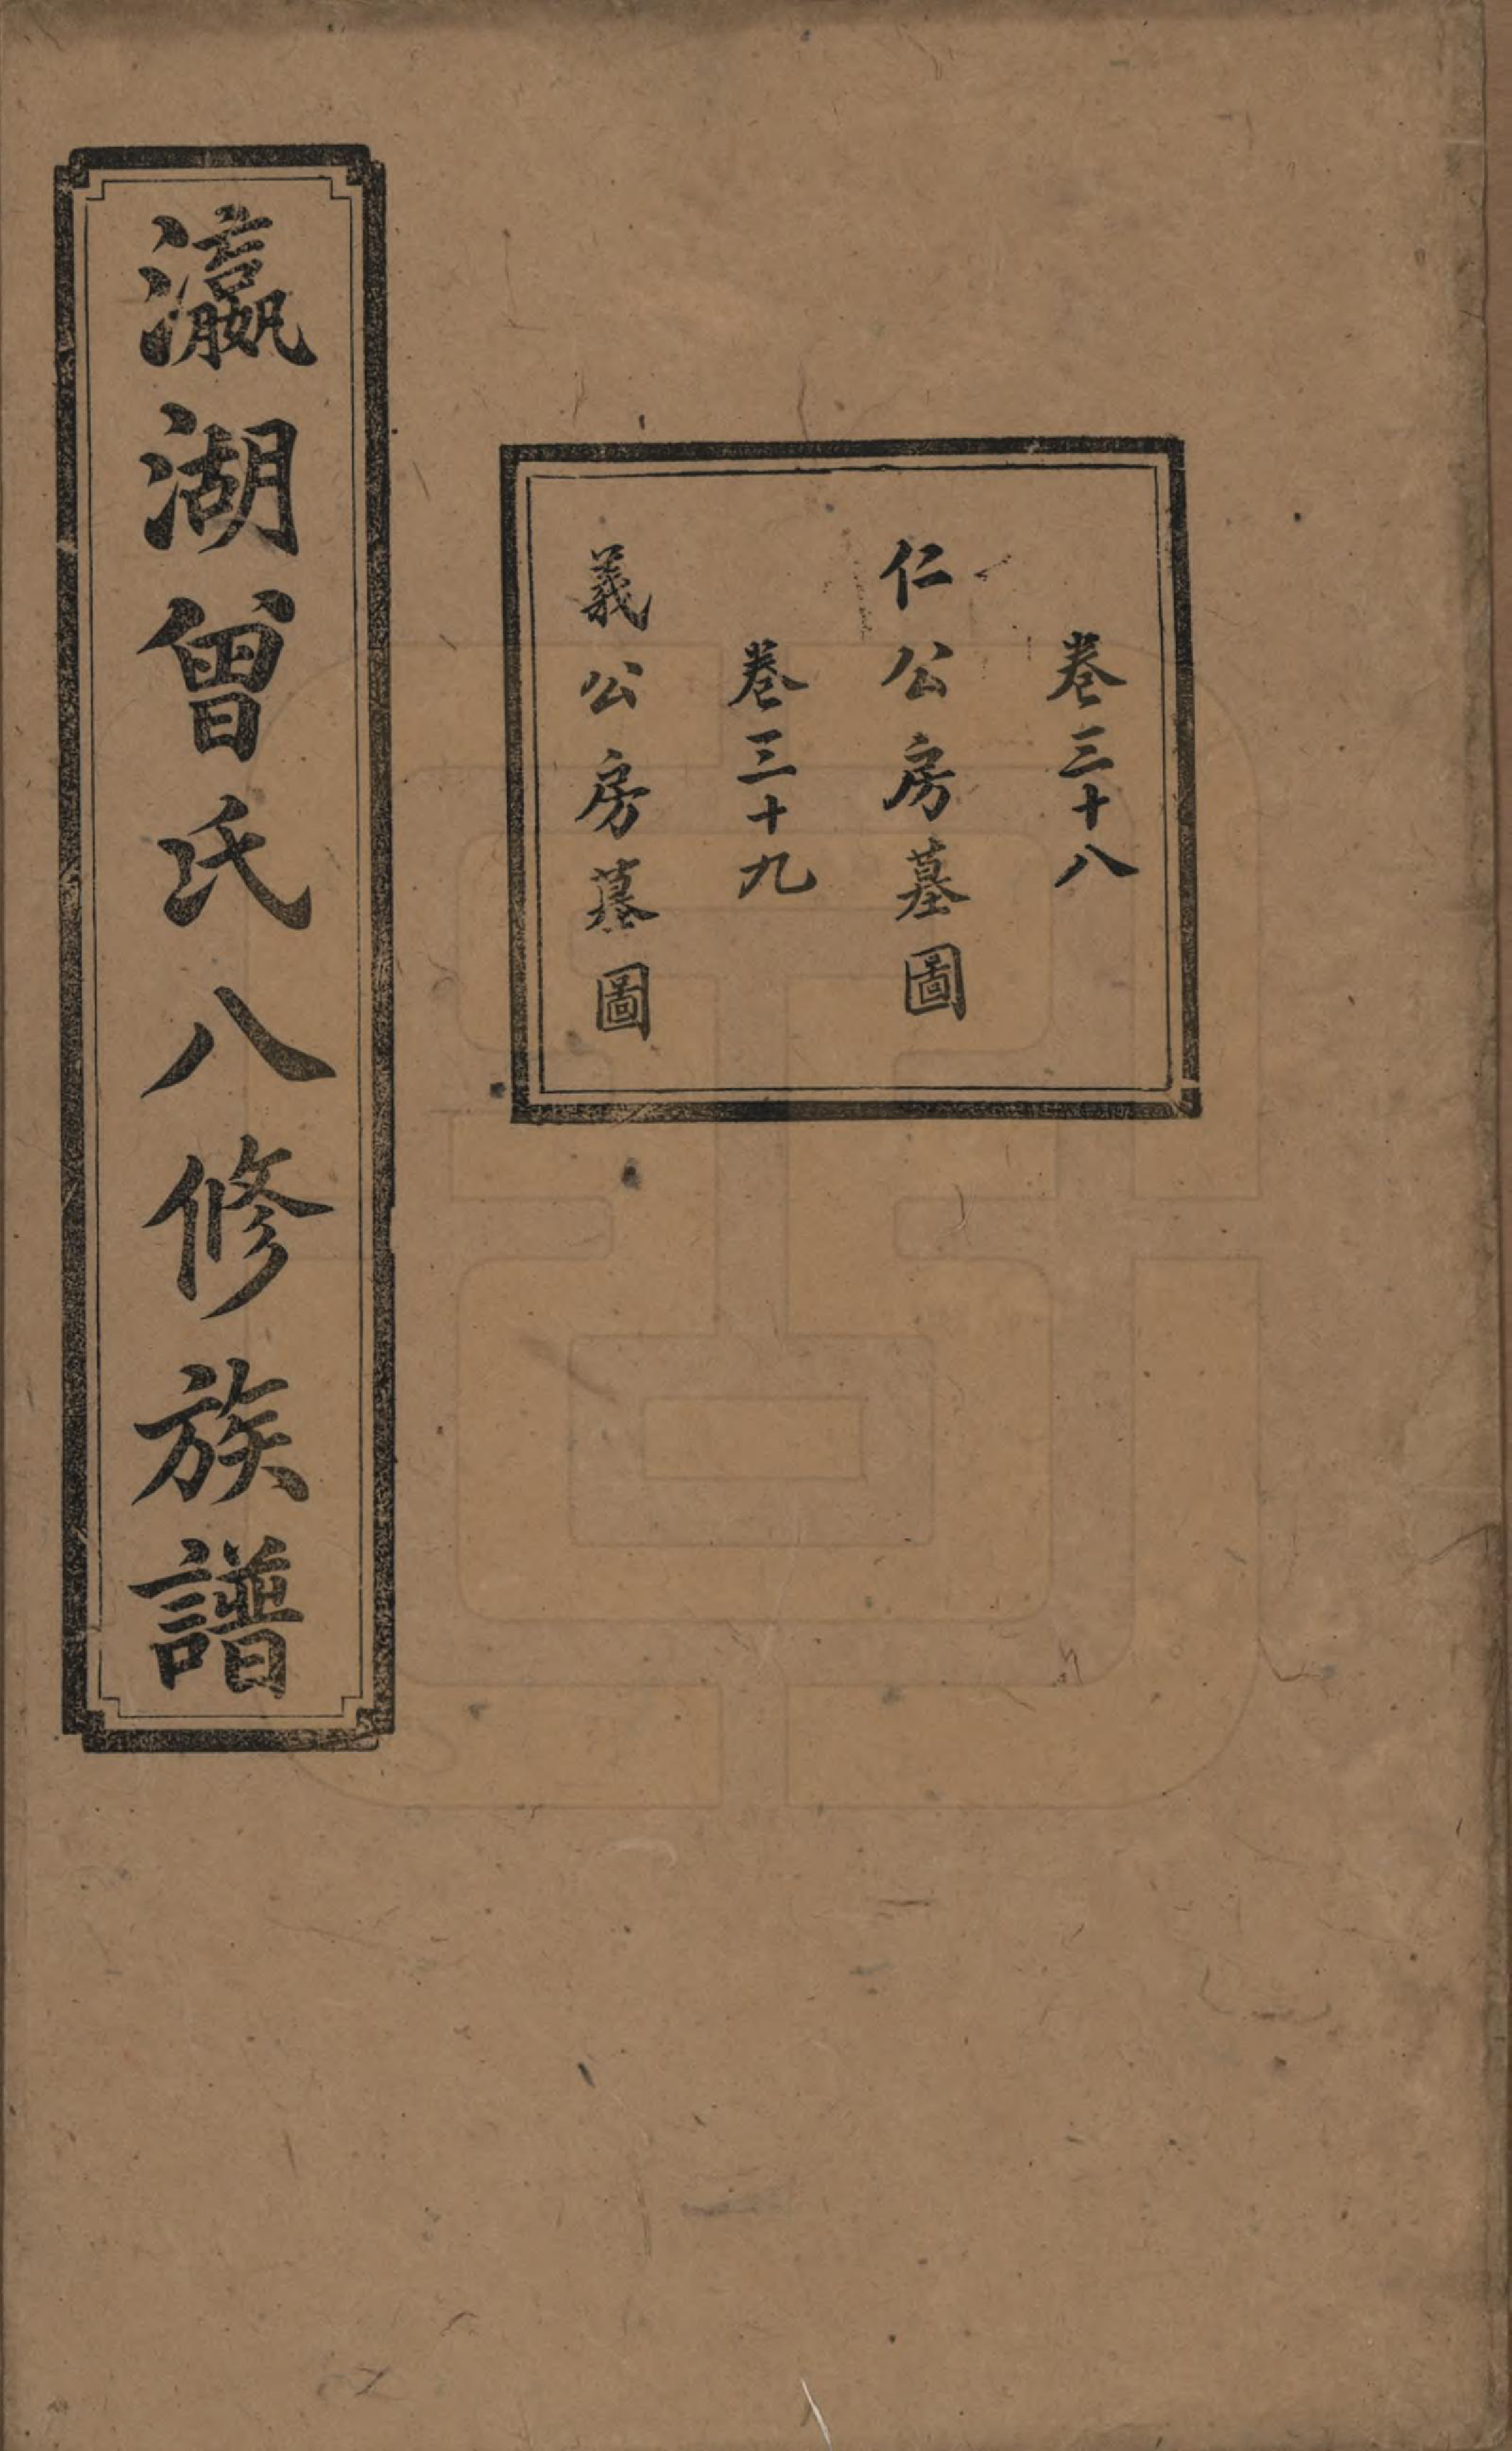 卷三十八
仁公房墓圖
卷三十九
義公房墓圖
瀛湖曾氏八修族譜